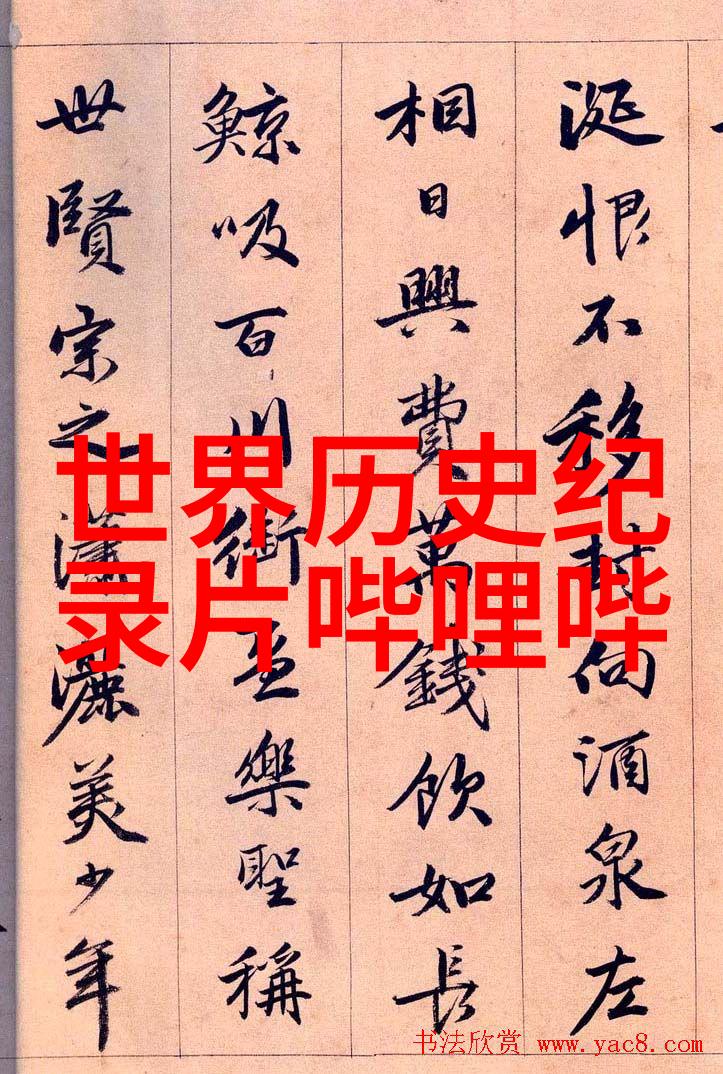 涎恨不移封向酒泉左
相日興費萬錢飲如長
鯨吸百川銜盃樂聖稱
世賢宗之瀟灑美少年
世界历史纪
录片哔哩哔
书法欣赏 www.yac8.com